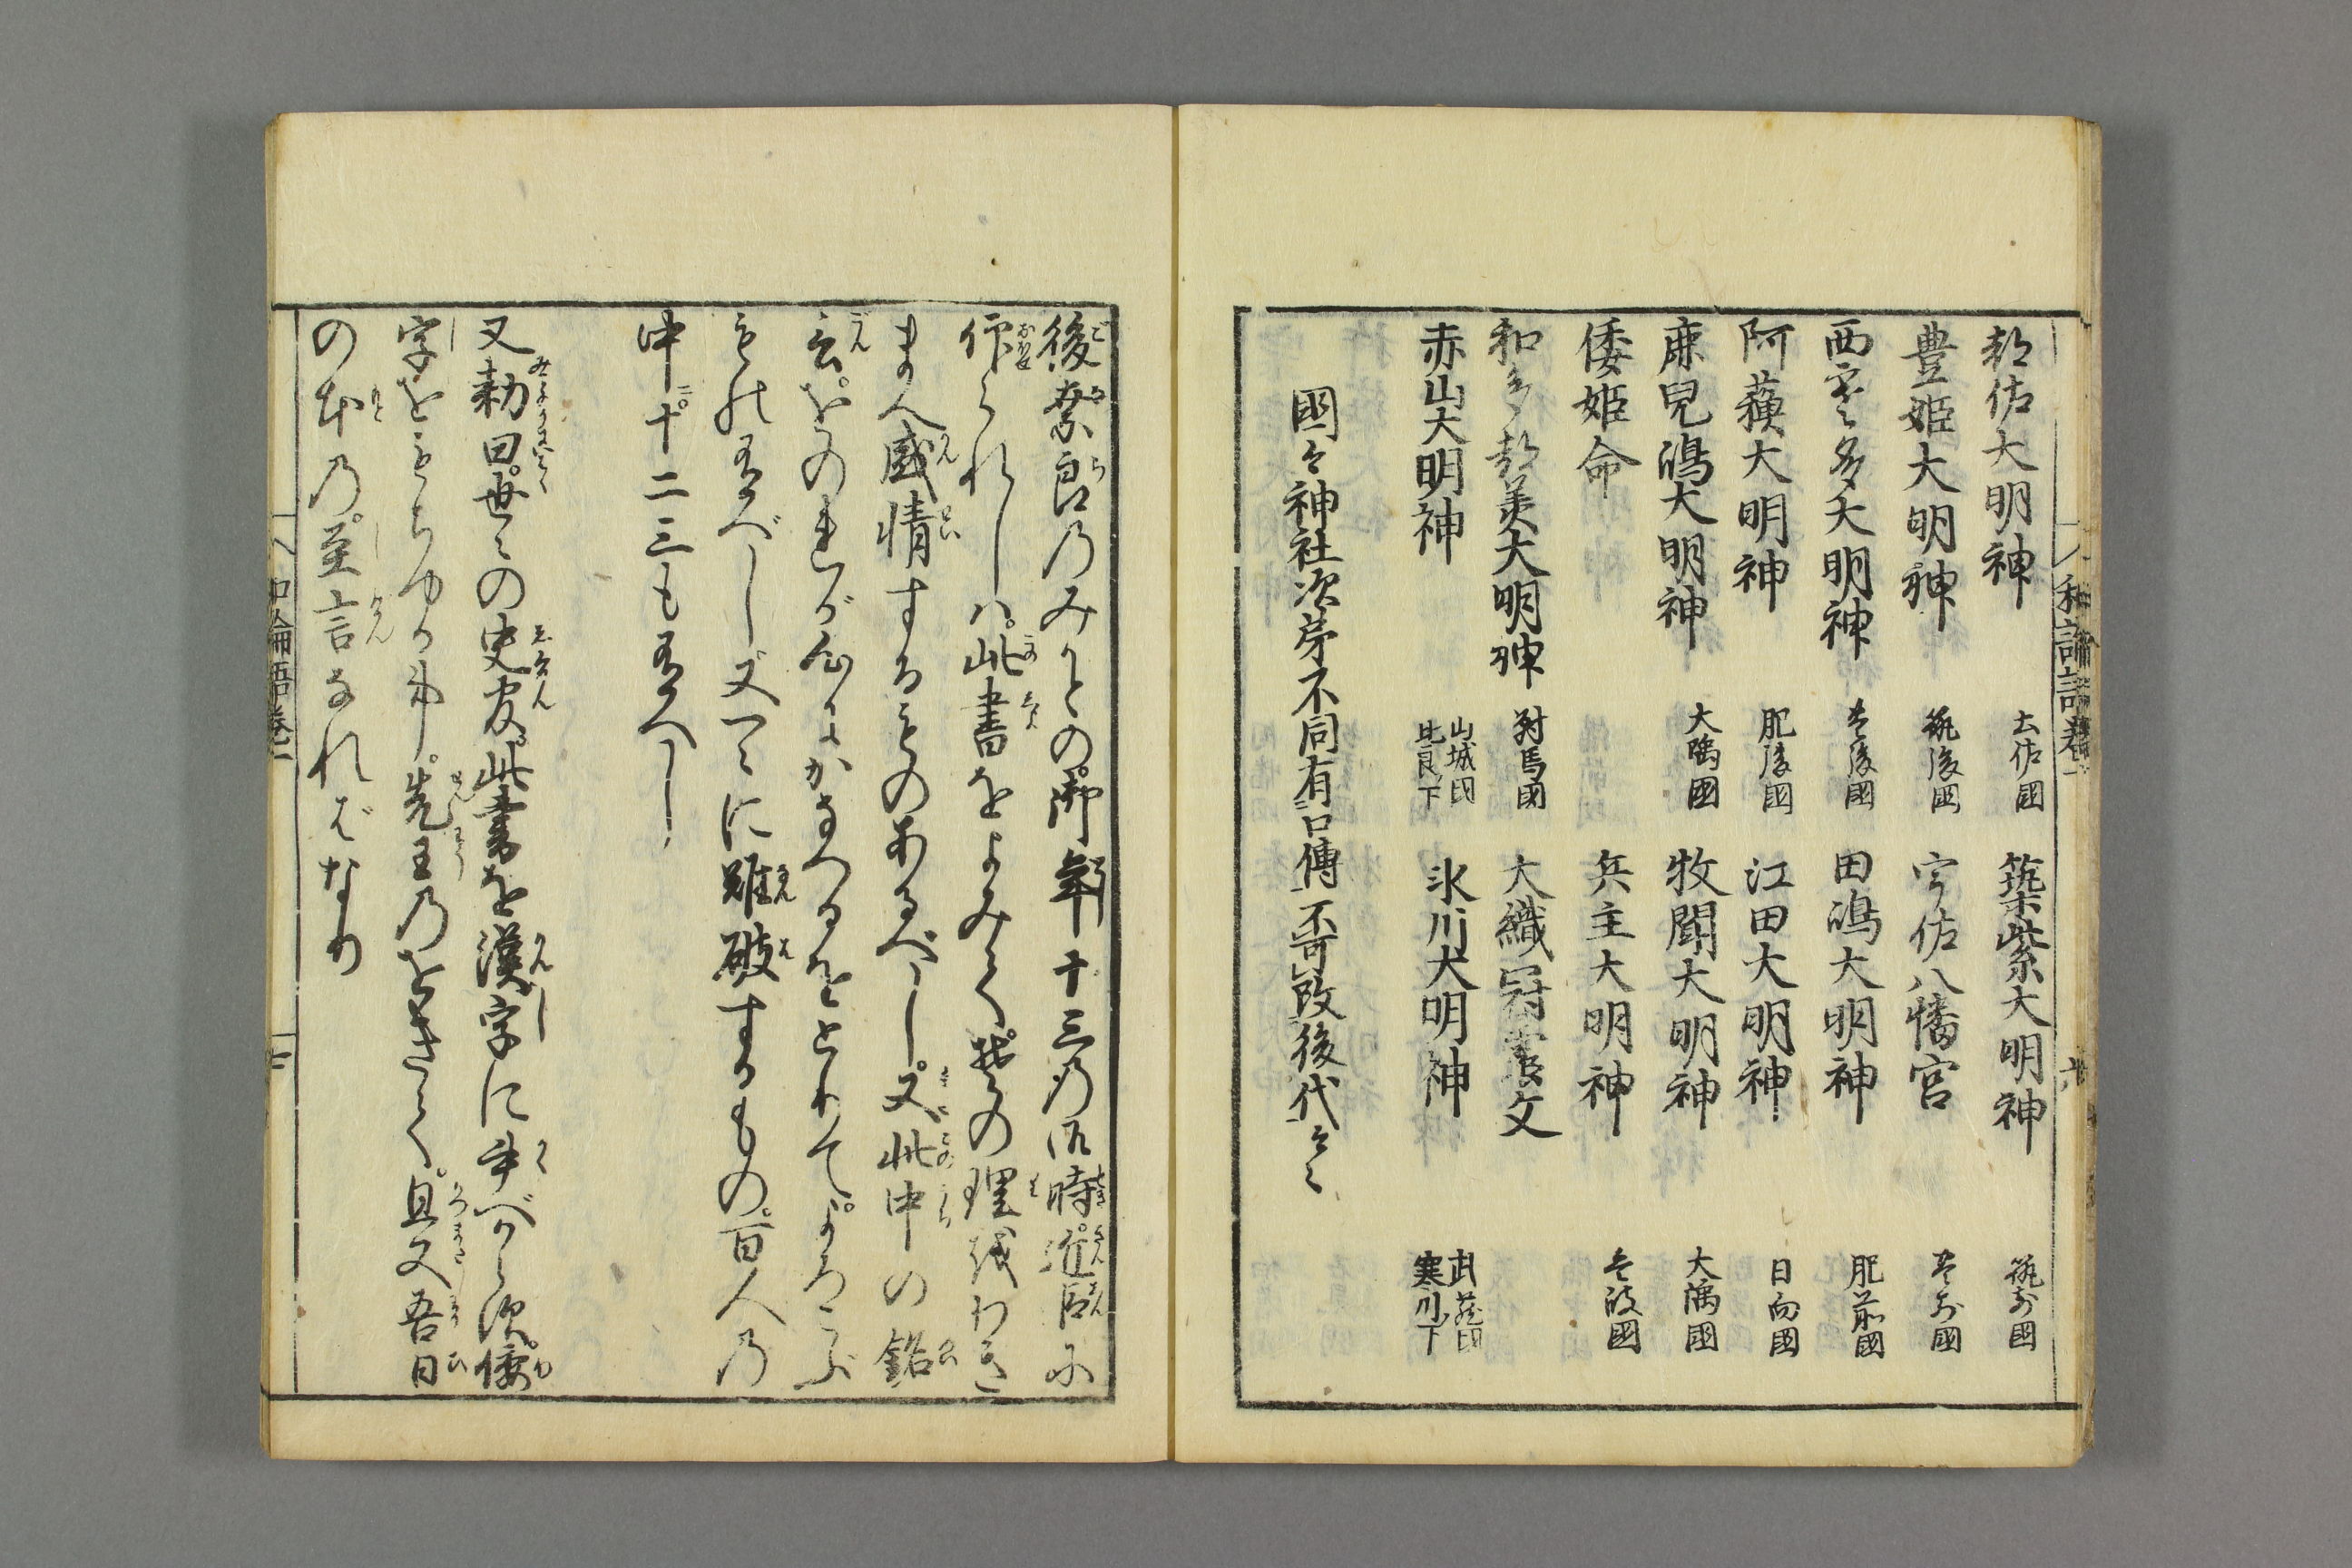 和論語巻一
都佐大明神 土佐國 筑紫大明神 筑前國
豊姫大明神 筑後國 宇佐八幡宮 豊前國
西寒多大明神 豊後國 田嶋大明神 肥前國
阿蘓大明神 肥後國 江田大明神 日向國
鹿兒嶋大明神 大隅國 牧聞大明神 大隅國
倭姫命 兵主大明神 壱岐國
和多都美大明神 對馬國 大織冠
赤山大明神 山城国比良下 氷川大明神 武蔵国寒川下
國々神社次第不同有口傳不可改後代云々
後奈良乃みかとの御年十三乃御時近臣に
作られしハ此書をよみてその理をわき
まへ感情するものあるべし又此中の銘
言をのれが心にかなへるをとりてよろこぶ
ものあるべし又つゐに難破するもの百人乃
中十二三も有へし
又勅曰世〻の史官此書を漢字に書べからず倭
字をもちゆへし先王乃をきて且又吾日
の本乃至言なれバなり
和論語巻一
七